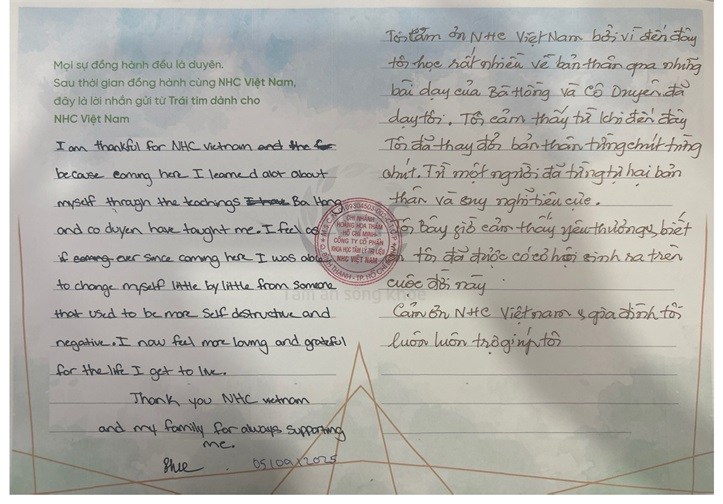 Mọi sự đồng hành đều là duyên.
Sau thời gian đồng hành cùng NHC Việt Nam,
đây là lời nhắn gửi từ Trái tim dành cho
NHC Việt Nam
I am thankful for NHC vietnam and the
because coming here I learned alot about
myself through the teachings Ba Hong
and co duyen have taught me. I feel as
if coming ever since coming here I was able
to change myself little by little from someone
that used to be more self destructive and
negative. I now feel more loving and grateful
for the life I get to live.
Thank you NHC vietnam
and my family for always supporting
me.
05/09/2025
Tôi cảm ơn NHC Việt Nam bởi vì đến đây
tôi học rất nhiều về bản thân qua những
bài dạy của Bà Hồng và Cô Duyên đã
dạy tôi. Tôi cảm thấy từ khi đến đây
Tôi đã thay đổi bản thân từng chút từng
chút. Từ một người đã từng tự hại bản
thân và suy nghĩ tiêu cực.
Tôi bây giờ cảm thấy yêu thương, biết
ơn tôi đã được có cơ hội sinh ra trên
cuộc đời này
Cảm ơn NHC Việt nam & gia đình tôi
luôn luôn trợ giúp tôi
CHI NHÁNH
HOÀNG HOA THÁM
HỒ CHÍ MINH
CÔNG TY CỔ PHẦN
KHOA HỌC TÂM LÝ TRỊ LIỆU
NHC VIỆT NAM
Tâm an sống khỏe